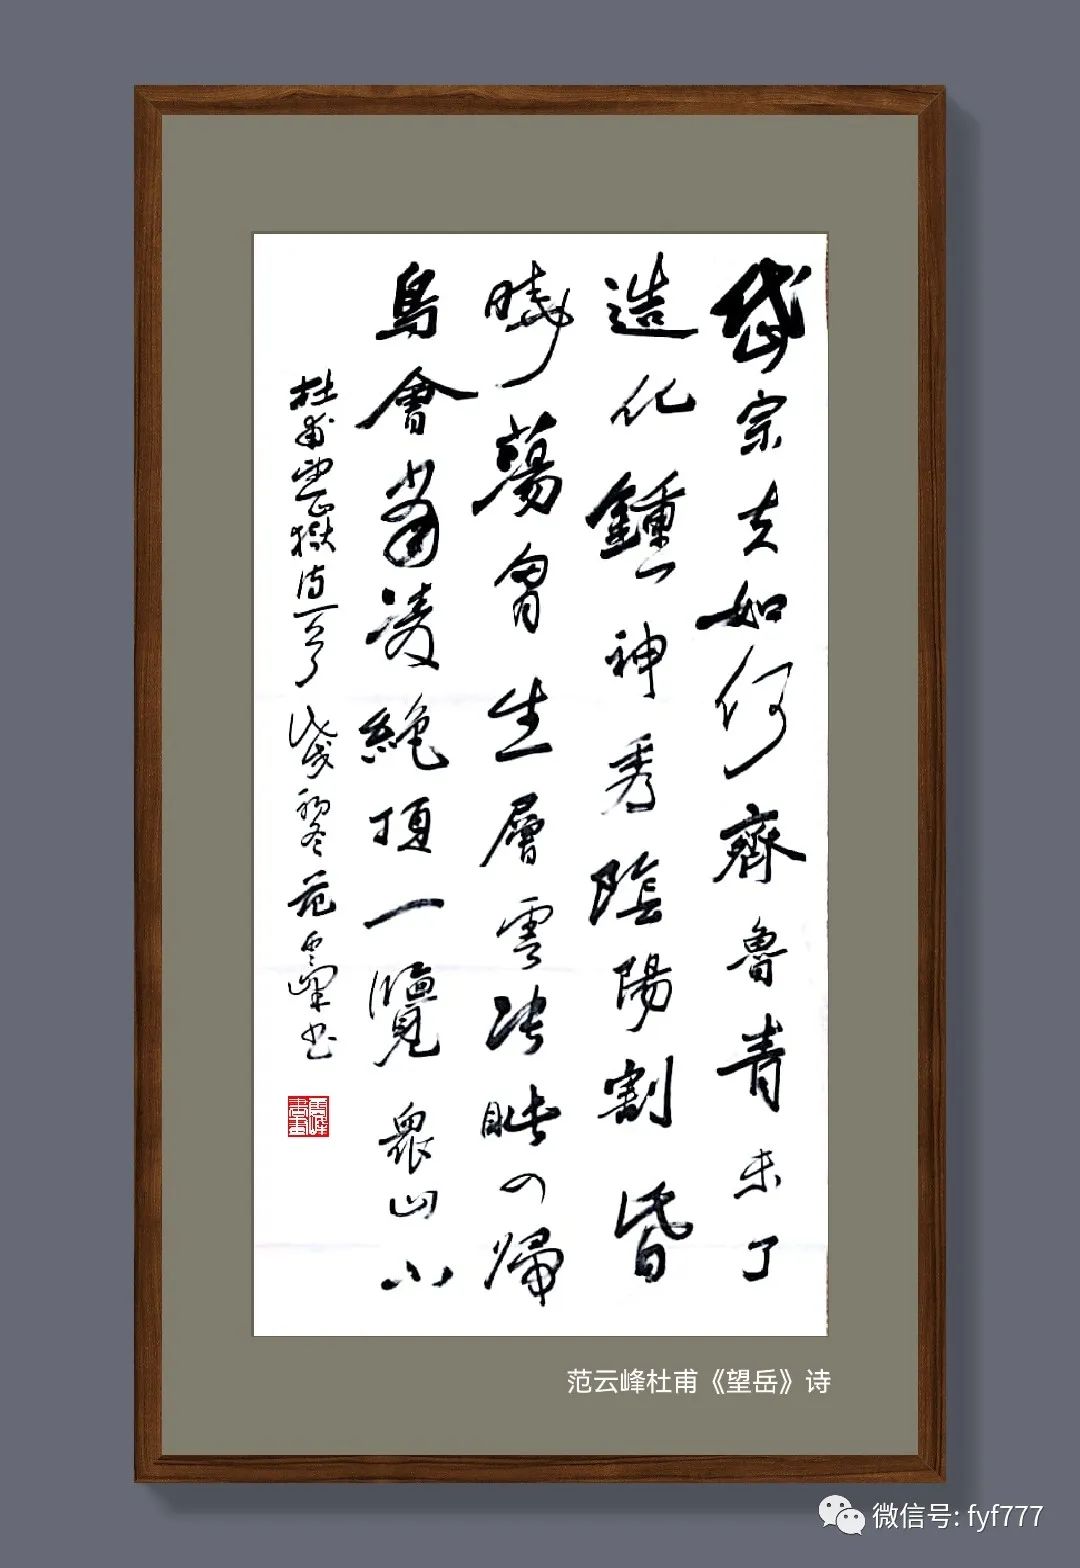 岱宗夫如何齊魯青未了
造化鍾神秀陰陽割昏
曉蕩胷生層雲决眦入歸
鳥會當凌絕頂一覽衆山小
杜甫望嶽诗一首戊戌初冬范云峰书
范云峰杜甫《望岳》诗
微信号: fyf777